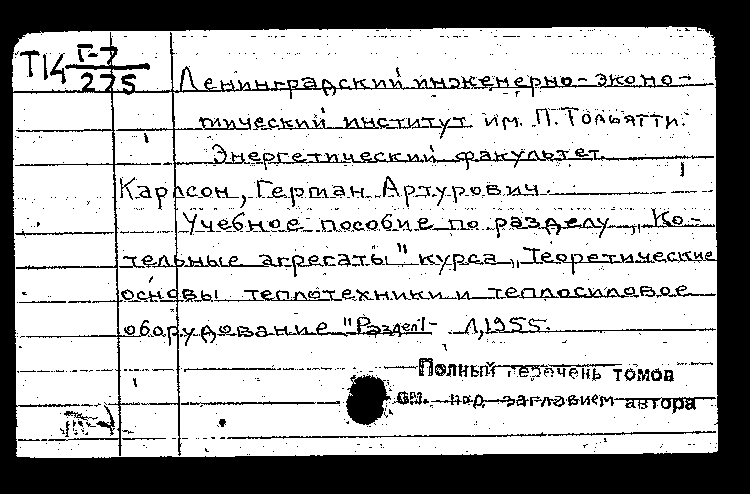 Т14 Г-7
275
Ленинградский инженерно-эконо-
мический институт им. П. Тольятти.
Энергетический факультет.
Карлсон, Герман Артурович.
Учебное пособие по разделу „Ко-
тельные агрегаты" курса „Теоретические
основы теплотехники и теплосиловое
оборудование" Раздел I- Л, 1955.
Полный перечень томов
см. под заглавием автора